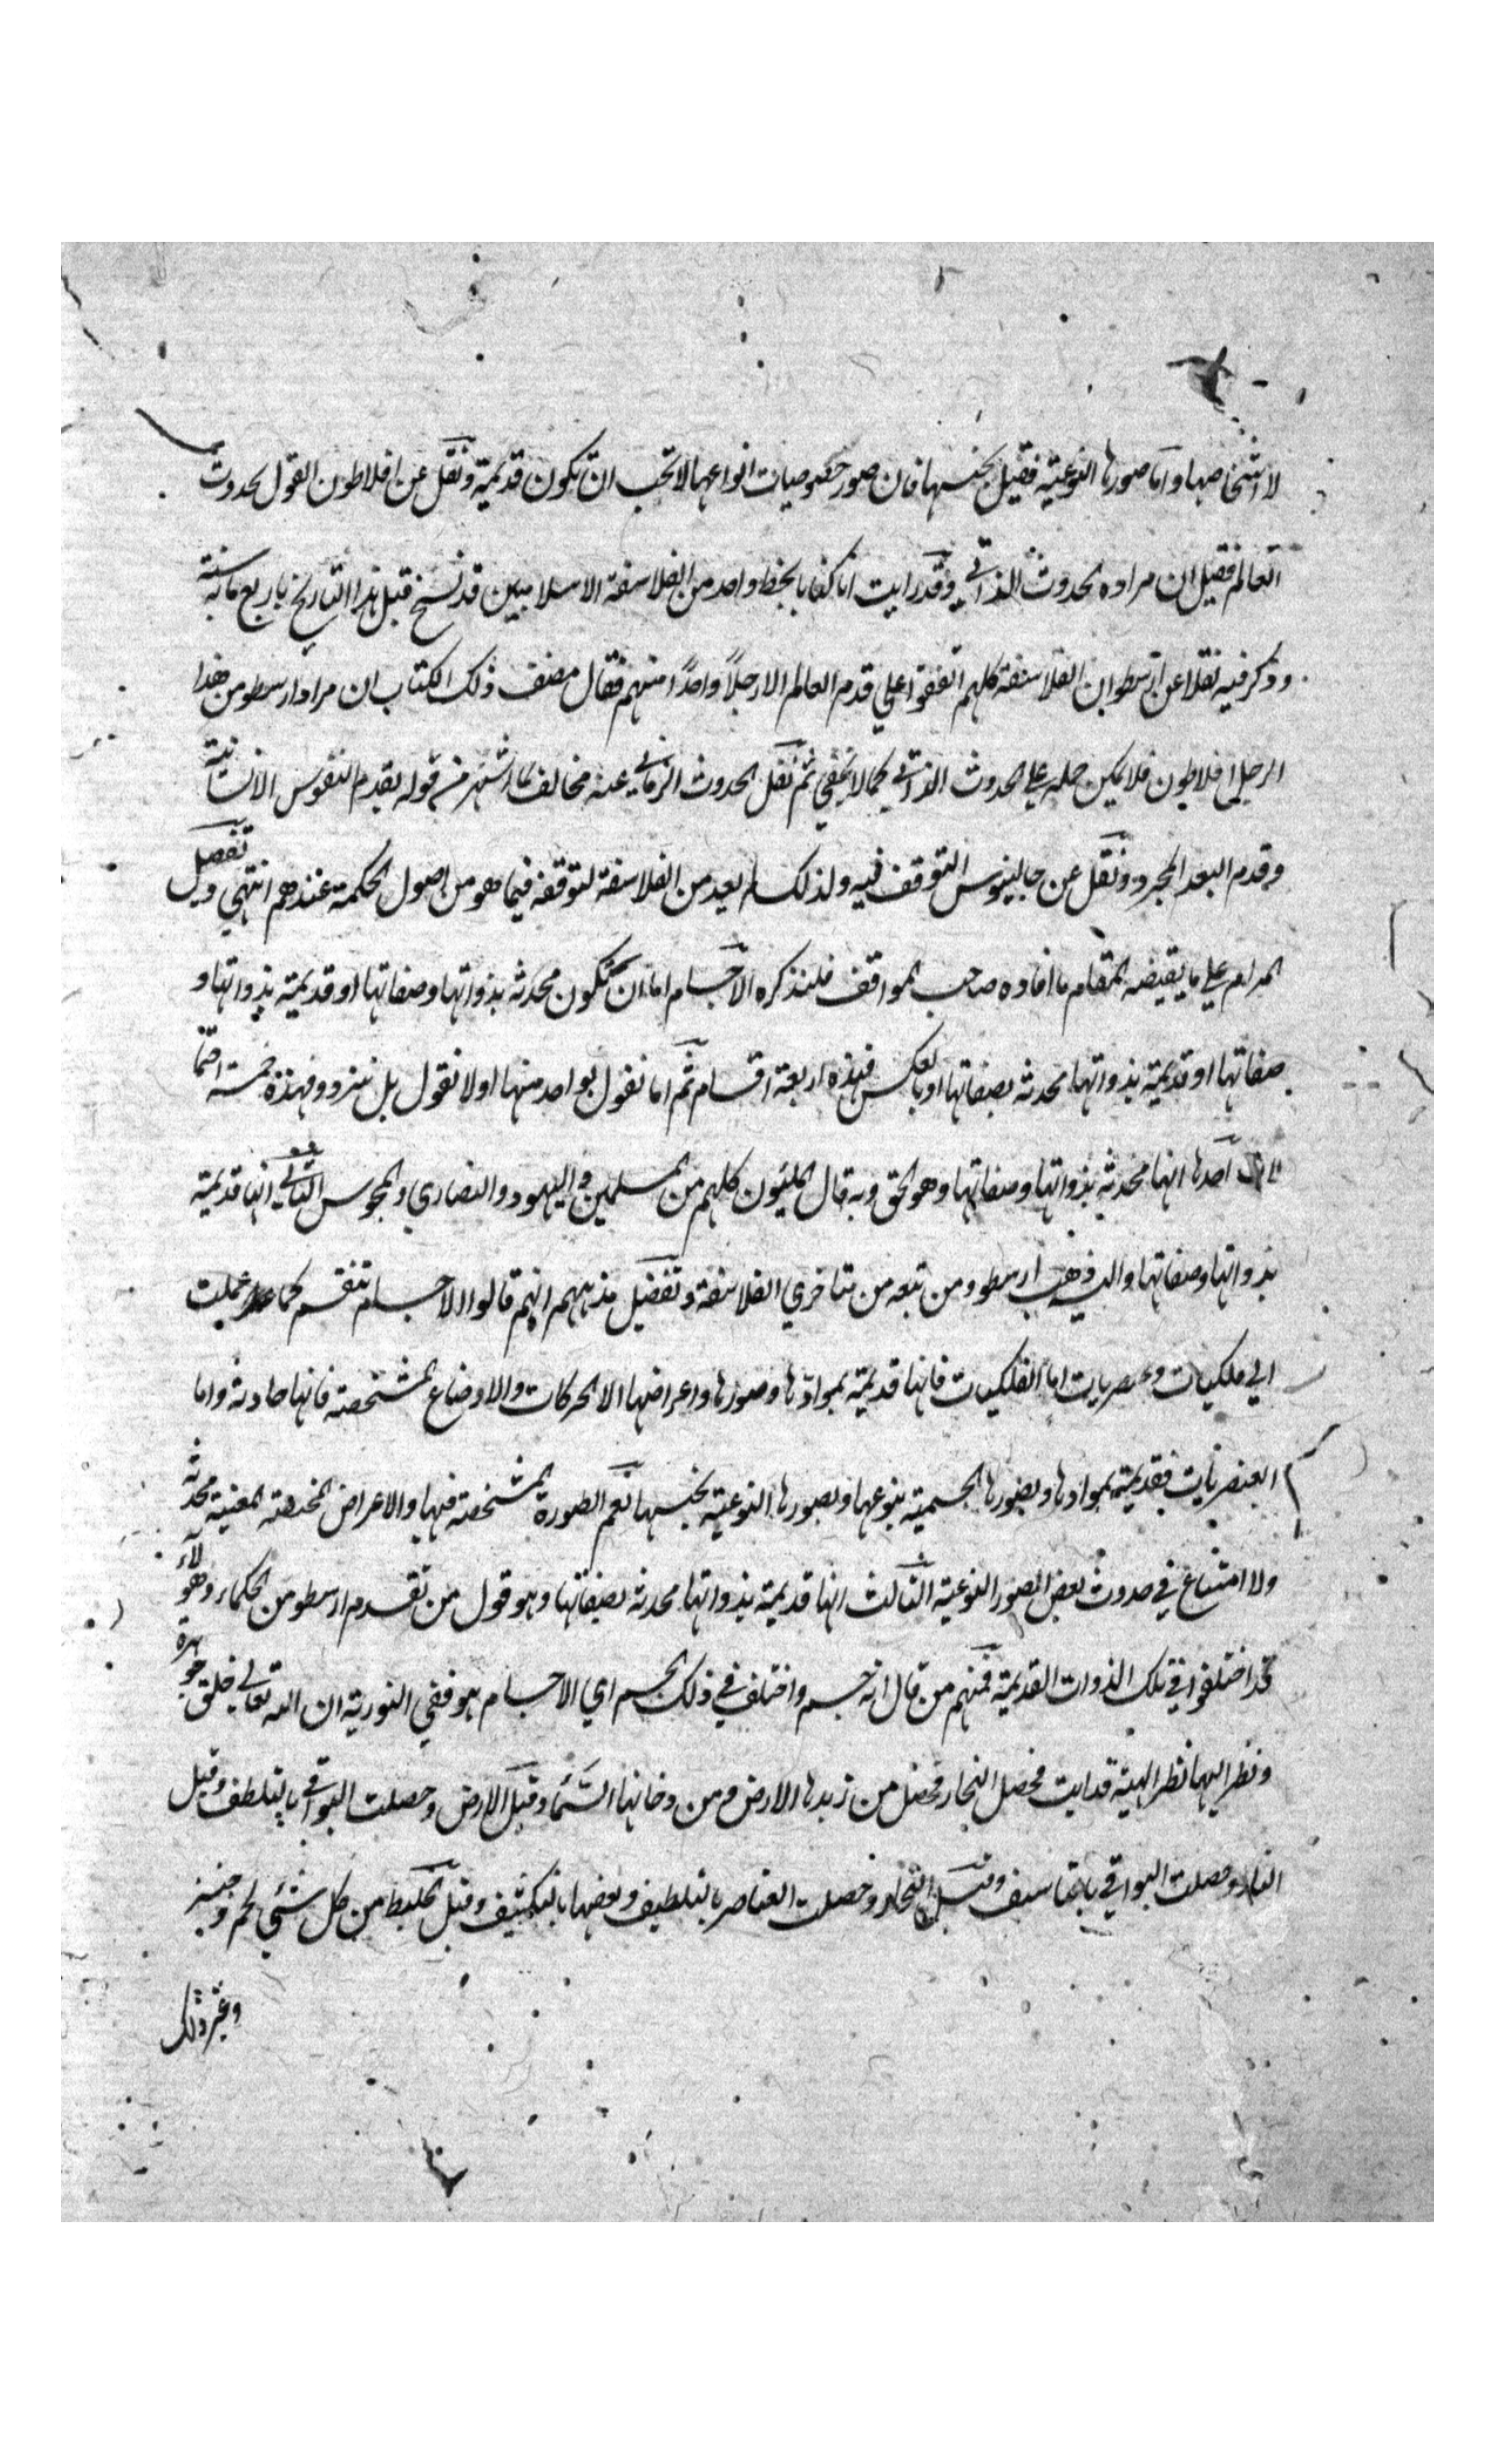 لا اشخاصها واما صورها النوعية فقيل بجنسها فان صور خصوصيات انواعها لا تجب ان تكون قديمة ونقل عن افلاطون القول بحدوث
العالم فقيل ان مراده بحدوث الذاتي وقد رايت انا كتابا بخط واحد من الفلاسفة الاسلاميين قد نسخ قبل هذا التاريخ باربع مائة سنة
وذكر فيه نقلا عن ارسطو ان الفلاسفة كلهم اتفقوا علي قدم العالم الا رجلاً واحداً منهم فقال مصنف ذلك الكتاب ان مراد ارسطو من هذا
الرجل افلاطون فلا يمكن حمله علي الحدوث الذاتي كما لا يخفي ثم نقل الحدوث الزماني عنه مخالف لما اشتهر من قوله بقدم النفوس الانسانية
وقدم البعد المجرد ونقل عن جالينوس التوقف فيه ولذلك لم يعد من الفلاسفة لتوقفه فيما هو من اصول الحكمة عندهم انتهي وتفصيل
المرام علي ما يقتضيه المقام ما افاده صاحب المواقف فلنذكره الاجسام اما ان تكون محدثه بذواتها وصفاتها او قديمة بذواتها و
صفاتها او قديمة بذواتها محدثه بصفاتها او بالعكس فهذه اربعة اقسام ثم اما نقول بواحد منها او لا نقول بل نتردد فهذه خمسة احتما
لات احدها انها محدثه بذواتها وصفاتها وهو الحق وبه قال المليون كلهم من المسلمين واليهود والنصاري والمجوس الثاني انها قديمة
بذواتها وصفاتها واليه ذهب ارسطو ومن تبعه من متاخري الفلاسفة وتفصيل مذهبهم انهم قالوا الاجسام تنقسم كما علمت
الي فلكيات وعنصريات اما الفلكيات فانها قديمة بموادها وصورها واعراضها الا الحركات والاوضاع المشخصة فانها حادثه واما
العنصريات فقديمة بموادها وبصورها الجسمية بنوعها وبصورها النوعية بجنسها نعم الصورة المشخصة فيها والاعراض المختصة المعينة محدثه
ولا امتناع في حدوث بعض الصور النوعية الثالث انها قديمة بذواتها محدثه بصفاتها وهو قول من تقدم ارسطو من الحكماء وهولاء
قد اختلفوا في تلك الذوات القديمة فمنهم من قال انه جسم واختلف في ذلك الجسم اي الاجسام هو ففي التورية ان الله تعالي خلق جوهرة
ونظر اليها نظر الهيبة فذابت فحصل البخار فحصل من زبدها الارض ومن دخانها السماء وقيل الارض وحصلت البواقي بالتلطف وقيل
النار وحصلت البواقي بالتكاثف وقيل البخار وحصلت العناصر بالتلطيف وبعضها بالتكثيف وقيل الخليط من كل شيء لحم وخبز
وغير ذلك